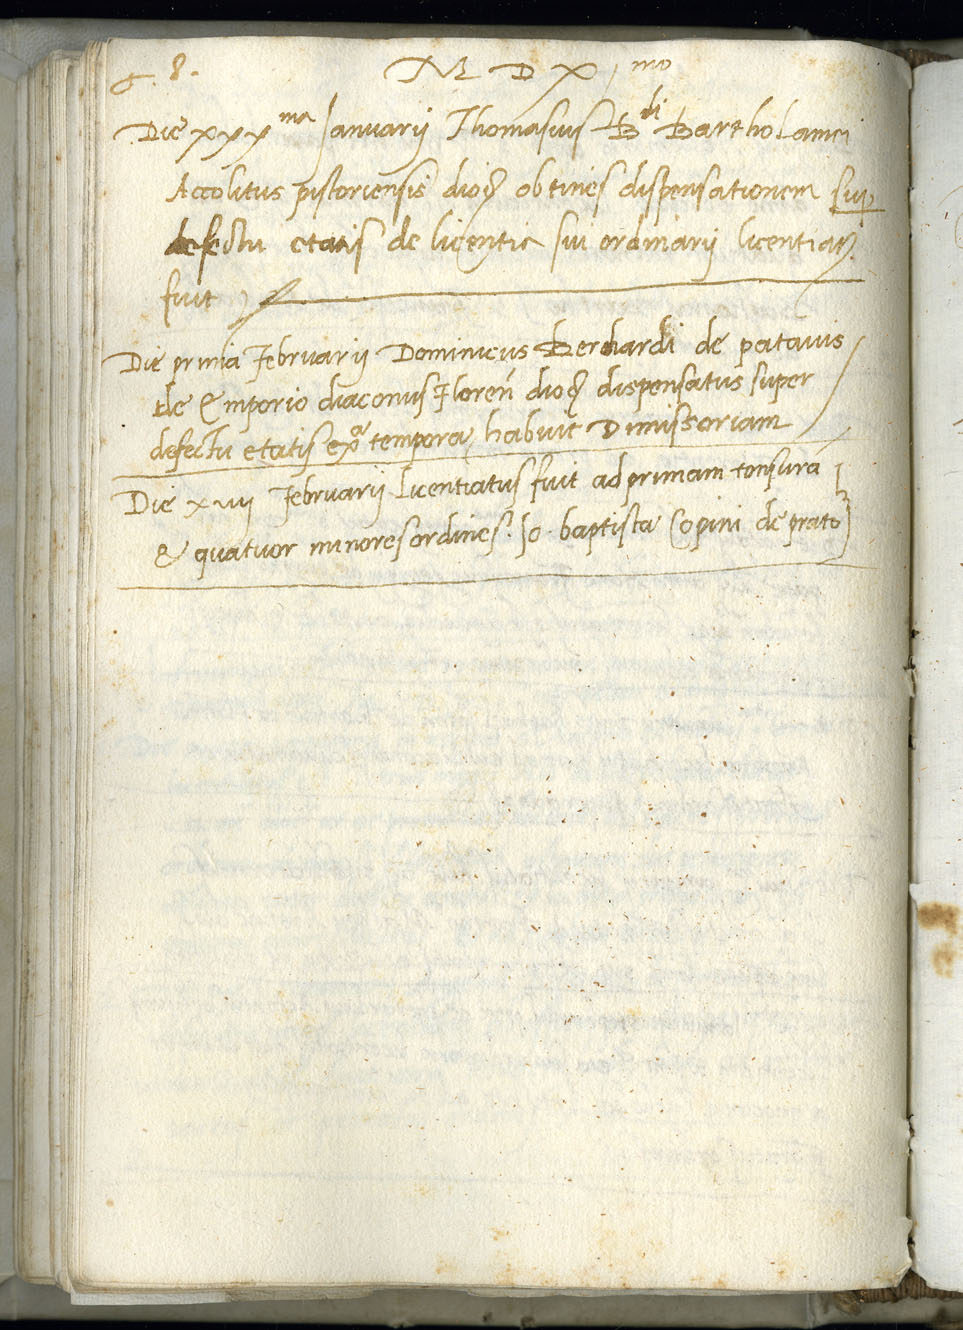 6 8.
M D X mo
Die xxx ma Januarij Thomasius B di Bartholamei
Accolitus pistoriensis dioc obtines dispensationem sup
defectu etatis de licentia sui ordinarij licentiat
fuit
Die prima Februarij Dominicus Berchardi de patavus
de Emporio diaconus Floren dioc dispensatus super
defectu etatis extra tempora habuit Dimissoriam
Die xvij Februarij Licentiatus fuit ad primam tonsura
& quatuor minores ordines. Jo. baptista Copini de prato